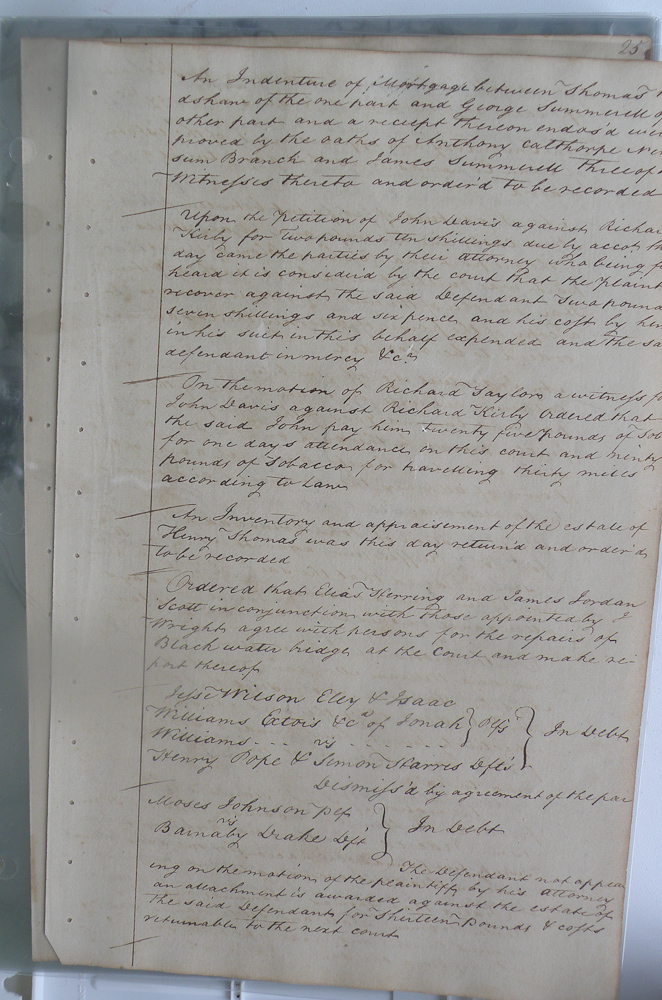 25
An Indenture of Mortgage between Thomas
dshaw of the one part and George Summerell
other part and a receipt thereon endos'd were
proved by the oaths of Anthony Calthorpe
sum Branch and James Summerell Three of
Witnesses thereto and order'd to be recorded
Upon the petition of John Davis against Richard
Kirby for Two pounds ten shillings due by accot
day came the parties by their attorney who being
heard it is consider'd by the court that the plaint
recover against the said Defendant Two pound
seven shillings and six pence and his cost by him
in his suit in this behalf expended and the sa
defendant in mercy &c.
On the motion of Richard Taylor a witness
John Davis against Richard Kirby Ordered that
the said John pay him twenty five pounds of Tob
for one days attendance on this court and ninty
pounds of Tobacco for travelling thirty miles
according to Law
An Inventory and appraisement of the estate of
Henry Thomas was this day return'd and order'd
to be recorded
Ordered that Elias Herring and James Jordan
Scott in conjunction with those appointed by J
Wright agree with persons for the repairs of
Black water bridge at the Court and make re-
port thereof
Jesse Wilson Eley & Isaac
Williams Extois &c of Jonah } Plfs } In Debt
Williams - - - vs - - - - - -
Henry Pope & Simon Harres Dfts
Dismiss'd by agreement of the par
Moses Johnson plf
vs } In Debt
Barnaby Drake Dft
The Defendant not appear
ing on the motion of the plaintiff by his attorney
an attachment is awarded against the estate of
the said Defendant for Thirteen pounds & costs
returnable to the next court